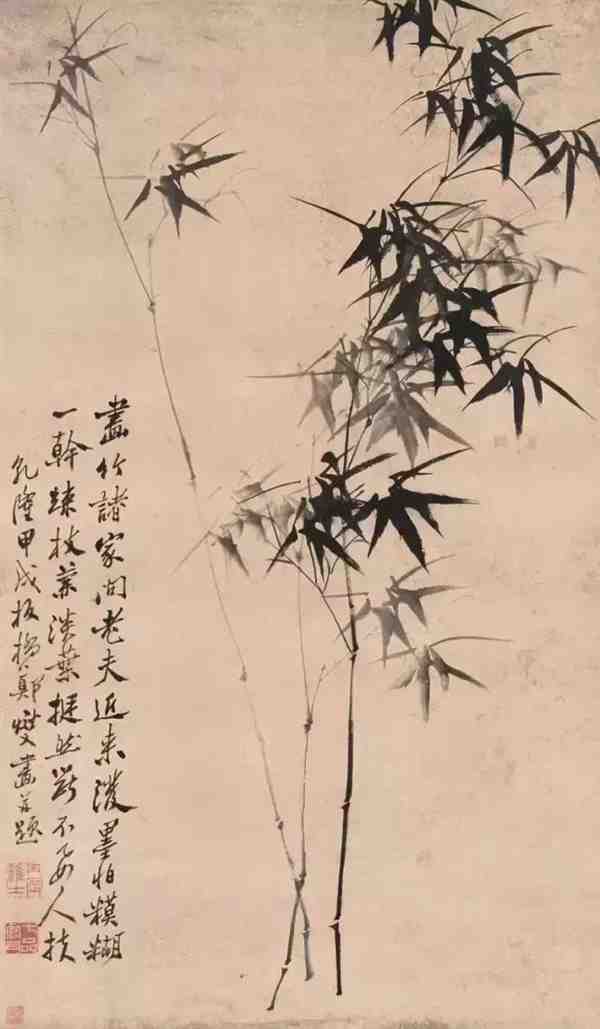 畫竹諸家問老夫近來潑墨怕糢糊
一幹踈枝兼淡葉挺然斷不要人扶
乾隆甲戌板橋鄭燮畫并題